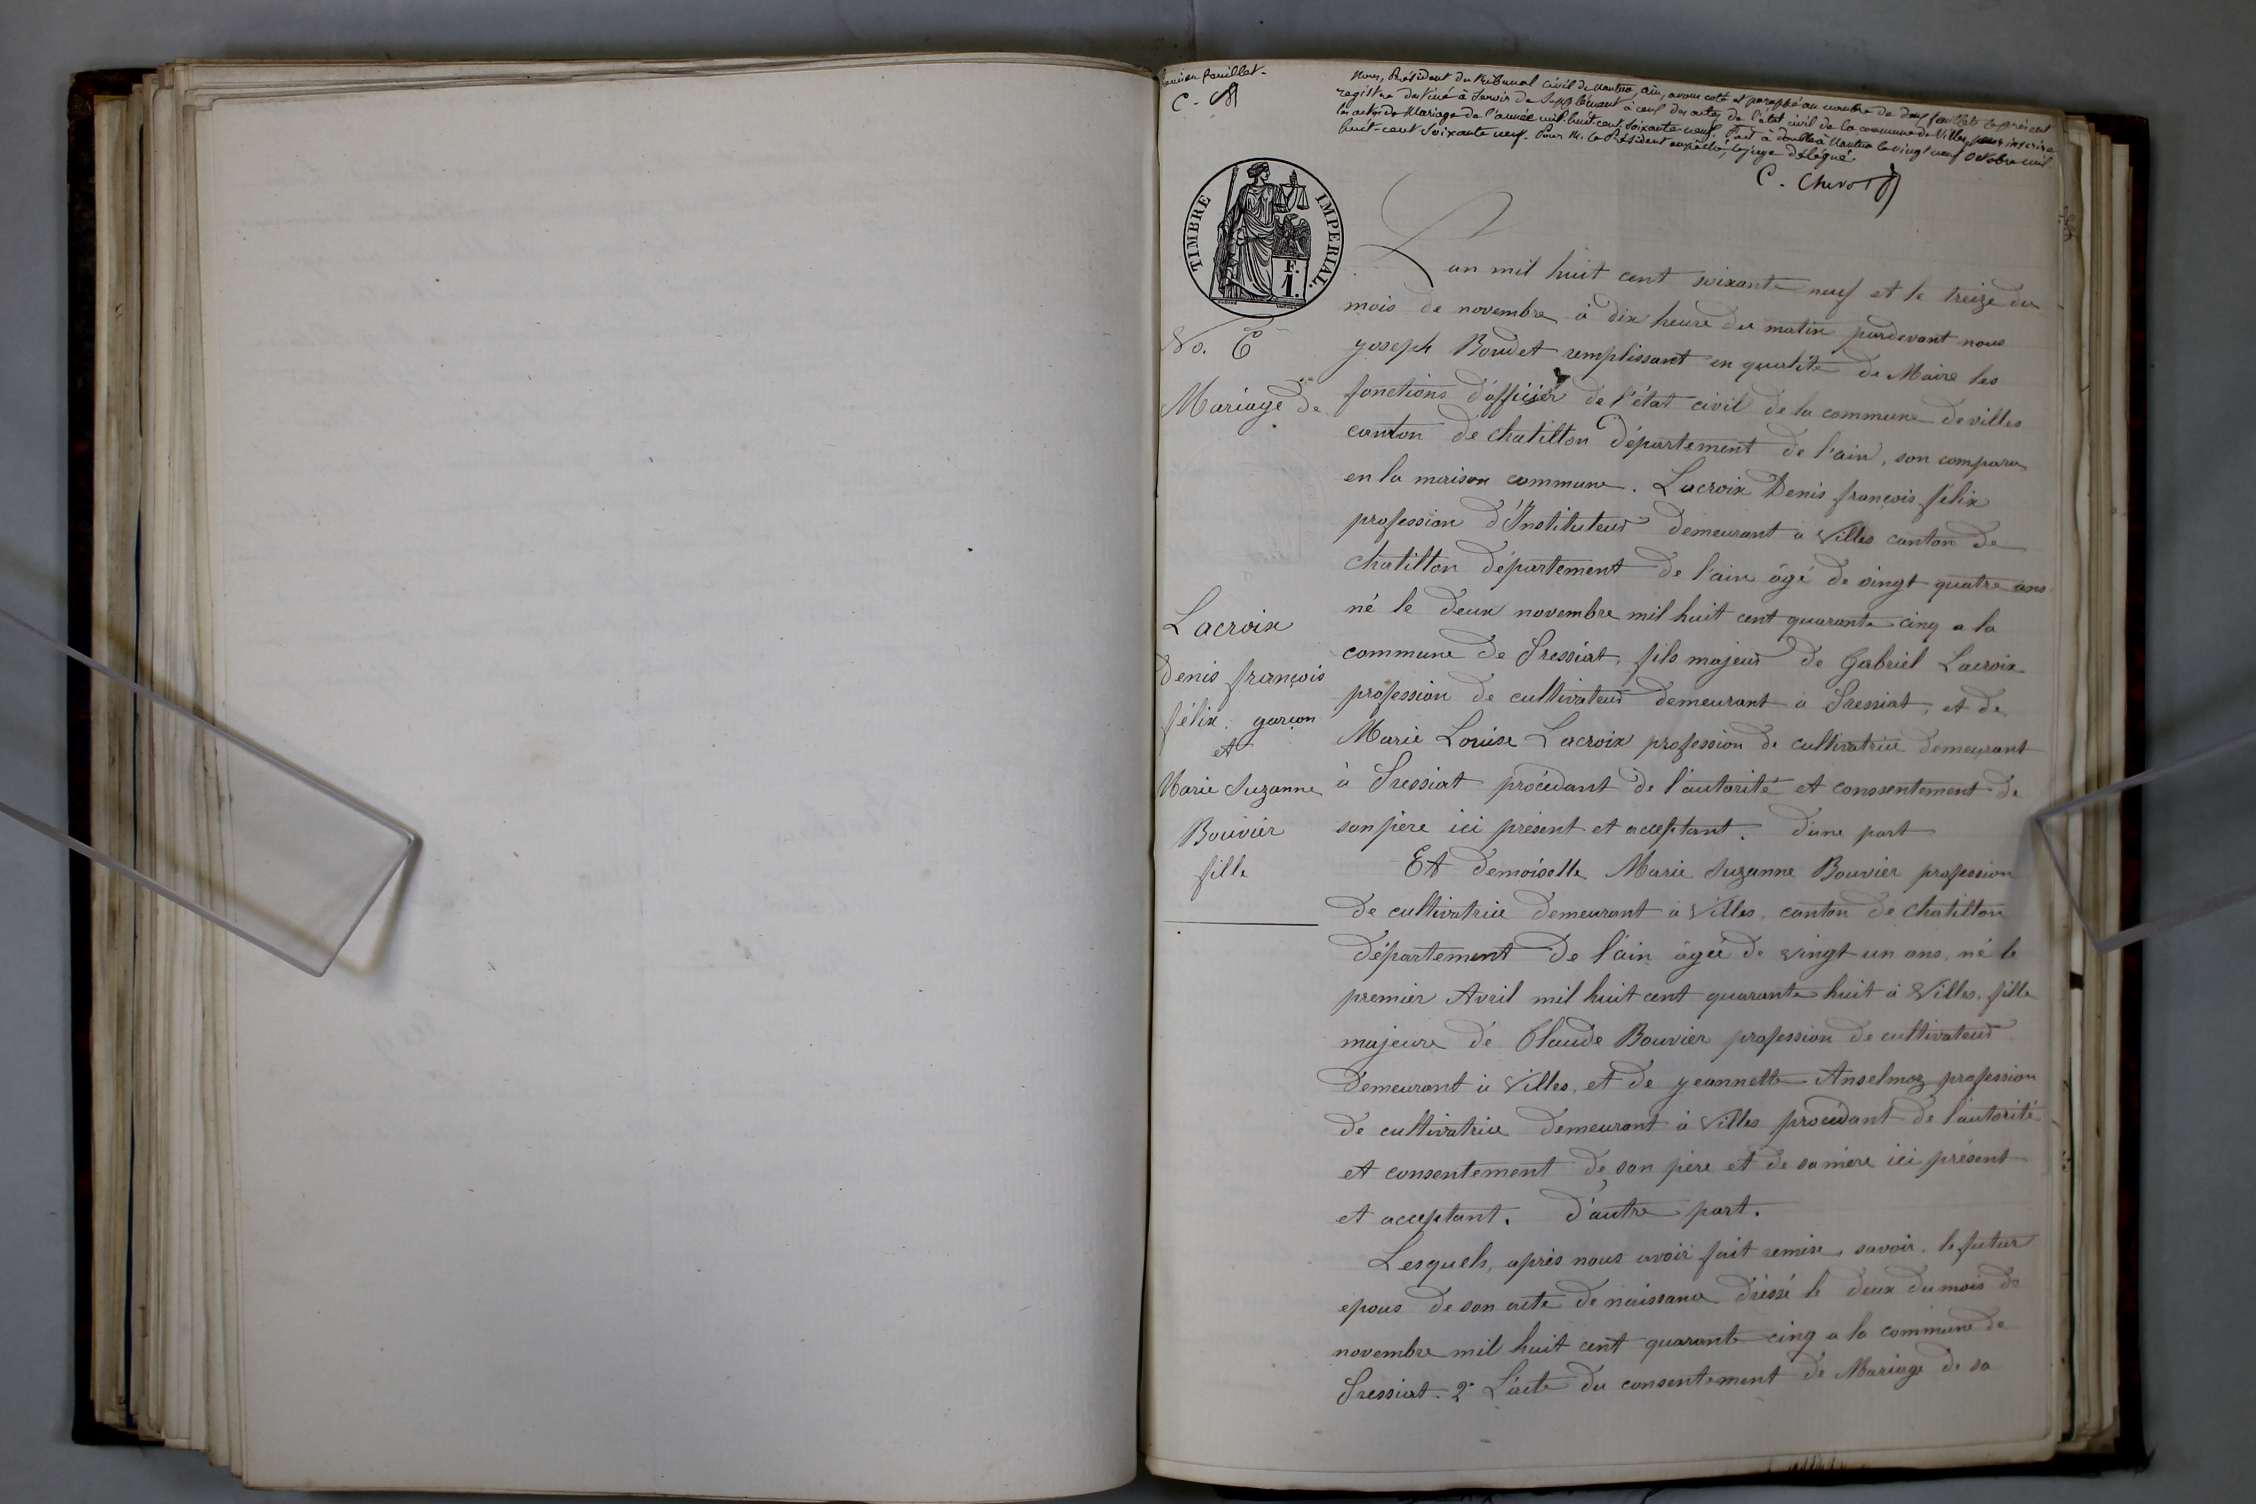 premier feuillet.
C. Ch
Nous, Président du tribunal civil de Nantua, Ain, avons coté et paraphé au nombre de deux feuillets le présent
registre destiné à servir de supplément à ceux des actes de l'état civil de la commune de Villes, pour inscrire
les actes de Mariage de l'année mil huit cent soixante neuf. Fait à double à Nantua le vingt neuf octobre mil
huit-cent soixante neuf. Pour M. le Président empêché, le juge délégué
C. Chevot
TIMBRE IMPERIAL.
F.
1.
No. 6
Mariage de
Lacroix
Denis françois
félix, garçon
et
Marie Suzanne
Bouvier
fille
L'an mil huit cent soixante neuf et le treize du
mois de novembre à dix heure du matin pardevant nous
yoseph Boudet remplissant en qualité de Maire les
fonctions d'officier de l'état civil de la commune de villes
canton de chatillon département de l'ain, son comparu
en la maison commune. Lacroix Denis françois félix
profession d'Instituteur demeurant a Villes canton de
chatillon département de l'ain âgé de vingt quatre ans
né le deux novembre mil huit cent quarante cinq a la
commune de Pressiat, fils majeur de Gabriel Lacroix
profession de cultivateur demeurant a Pressiat, et de
Marie Louise Lacroix profession de cultivatrice demeurant
à Pressiat procédant de l'autorité et conssentement de
son père ici présent et acceptant. d'une part
Et demoiselle Marie Suzanne Bouvier profession
de cultivatrice demeurant a Villes, canton de chatillon
département de l'ain âgée de vingt un ans, né le
premier Avril mil huit cent quarante huit à Villes, fille
majeure de Claude Bouvier profession de cultivateur
demeurant à Villes, et de yeannette Anselmoz profession
de cultivatrice demeurant à Villes procedant de l'autorité
et consentement de son père et de sa mère ici présent
et acceptant. d'autre part.
Lesquels, après nous avoir fait remise, savoir. le futur
epous de son acte de naissance dressé le deux du mois de
novembre mil huit cent quarante cinq a la commune de
Pressiat. 2° L'acte du consentement de Mariage de sa